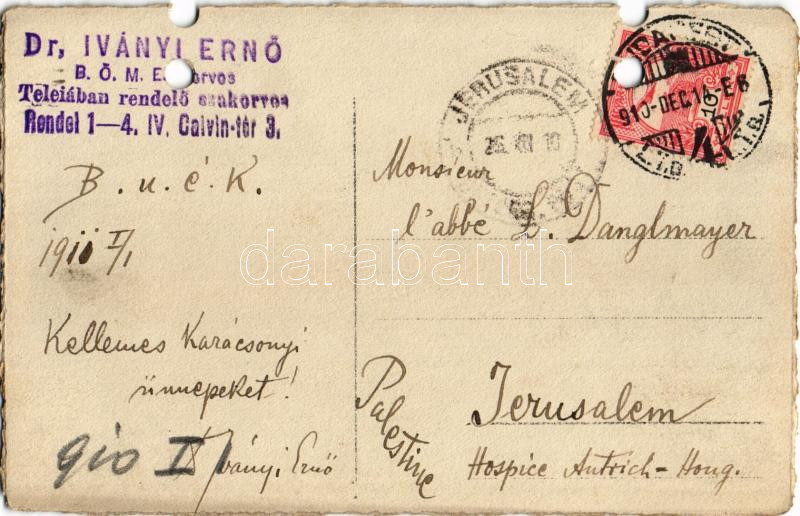 Dr, IVÁNYI ERNŐ
B. Ő. M. E. orvos
Teleiában rendelő szakorvos
Rendel 1—4. IV. Calvin-tér 3.
JERUSALEM
910-DEC.14-E6
B. u. é. K.
1911 I/1
Kellemes Karácsonyi
ünnepeket!
910 I/1
Iványi Ernő
Monsieur
l'abbé L. Danglmayer
Palestine
Jerusalem
Hospice Autrich-Hong.
darabanth